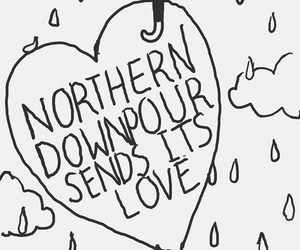 NORTHERN
DOWNPOUR
SENDS ITS
LOVE